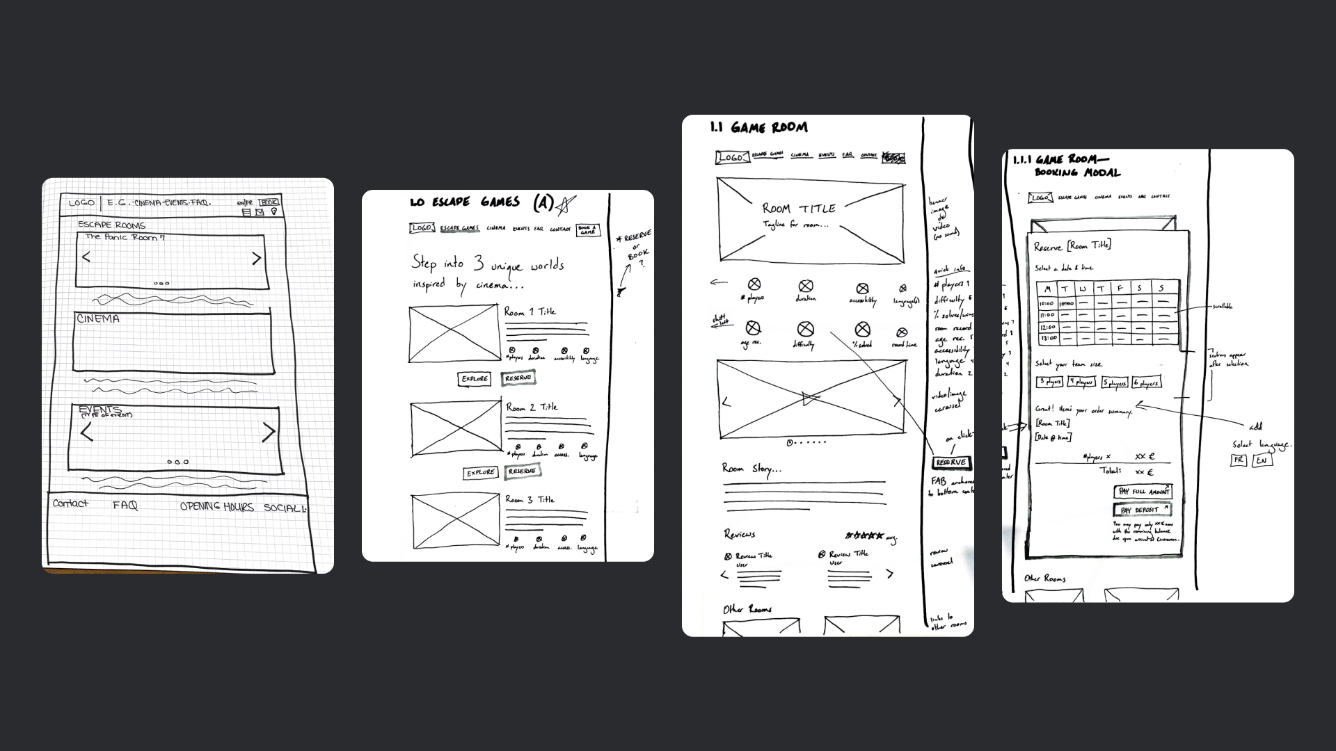 LOGO
E.G. CINEMA EVENTS FAQ.
BOOK
ESCAPE ROOMS
The Panic Room?
CINEMA
EVENTS
(TYPE OF EVENT)
Contact
FAQ
OPENING HOURS
SOCIAL
1.0 ESCAPE GAMES (A)
LOGO
ESCAPE GAMES
CINEMA
EVENTS
FAQ
CONTACT
BOOK A
GAME
* RESERVE
or
BOOK
?
Step into 3 unique worlds
inspired by cinema...
Room 1 Title
#players
duration
accessibility
language
EXPLORE
RESERVE
Room 2 Title
#players
duration
access.
language
EXPLORE
RESERVE
Room 3 Title
#players
duration
access.
language
1.1 GAME ROOM
LOGO
ESCAPE GAMES
CINEMA
EVENTS
FAQ
CONTACT
ROOM TITLE
Tagline for room...
banner
image
or
video
(no sound)
# players
duration
accessibility
language(s)
age rec.
difficulty
% solved
record time
quick info
# players
difficulty
% solved/
room record
age rec.
accessibility
language
duration
video/image
carousel
on click
RESERVE
FAB anchored
to bottom
Room Story...
Reviews
avg.
Review Title
User
Review Title
User
review
carousel
Other Rooms
links to
other rooms
1.1.1 GAME ROOM—
BOOKING MODAL
LOGO
ESCAPE GAMES
CINEMA
EVENTS
FAQ
CONTACT
Reserve [Room Title]
Select a date & time
M T W T F S S
10:00 10:00
11:00
12:00
13:00
scrollable
Select your team size
3 players
4 players
5 players
6 players
sections appear
after selection
Great! Here's your order summary.
[Room Title]
[Date @ time]
#players x xx €
Total: xx €
PAY FULL AMOUNT
PAY DEPOSIT
You may pay only xx€ now
with the remaining balance
due upon arrival
add
Select language.
FR
EN
Other Rooms